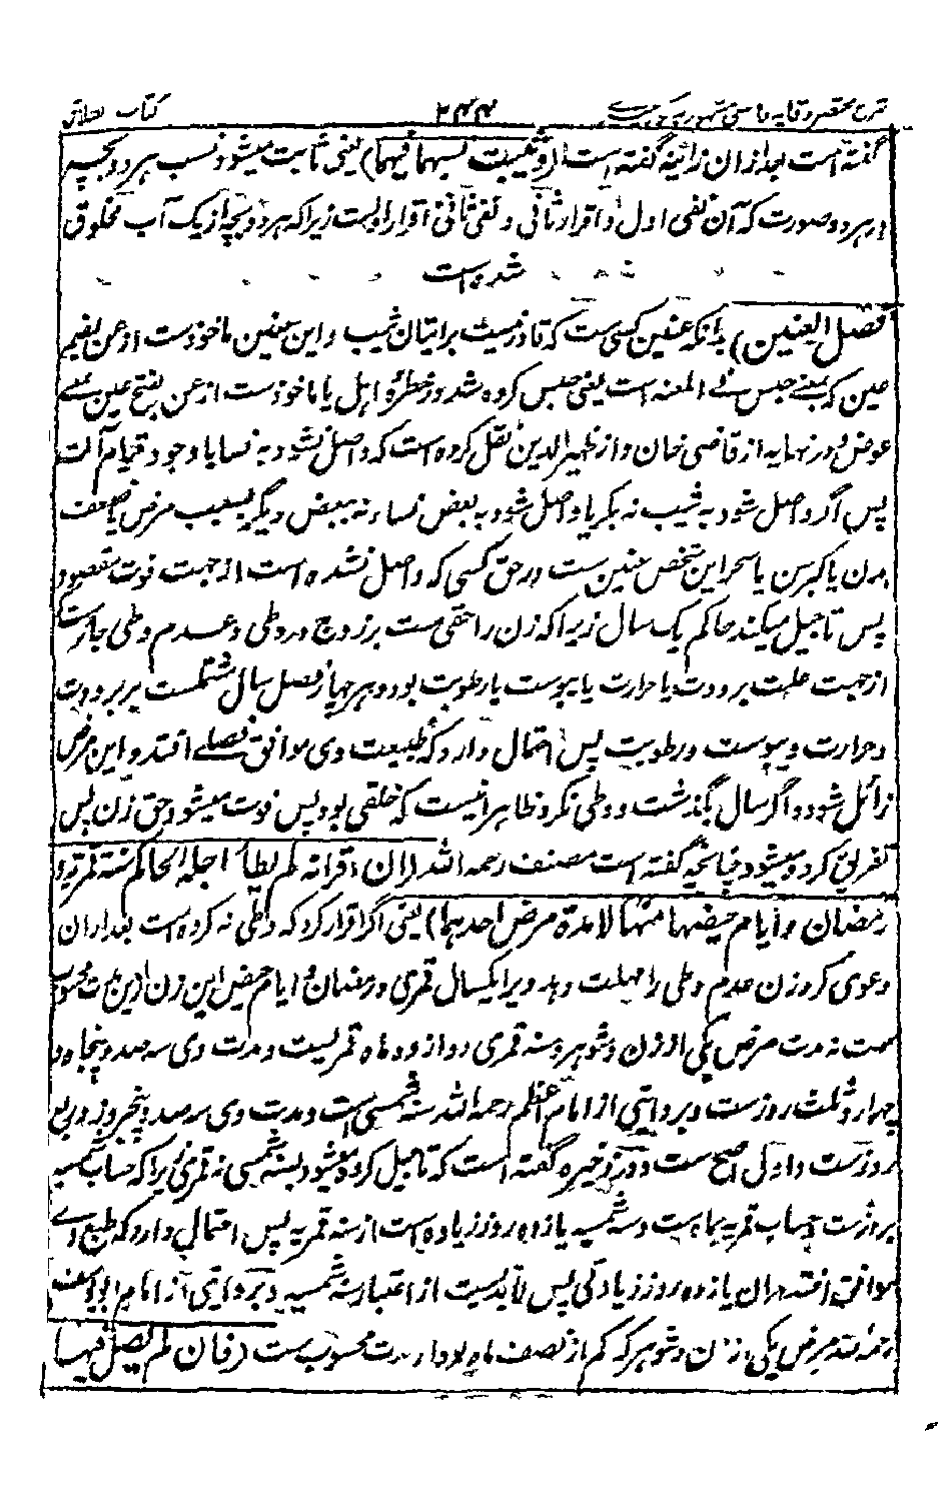 شرح مختصر وقایه فارسی مشهور به کور میری ۲۴۴ کتاب الطلاق
گفته است بعد ازان زانیه گفته است (و یثبت نسبهما فیهما) یعنی ثابت میشود نسب هر دو بچه
در هر دو صورت که آن نفی اول و اقرار ثانی و نفی ثانی و اقرار اول ست زیرا که هر دو بچه از یک آب مخلوق
شده است
فصل العنین) بدانکه عنین کسی ست که قادر نیست بر اتیان شیب و این عنین ماخوذ ست از عن بضم
عین که بمعنے حبس فی العنه است یعنی حبس کرده شد در خطره ابل یا ماخوذ ست از عن بفتح عین بمعنے
عوض و در نهایه از قاضی خان و از ظهیر الدین نقل کرده است که واصل نشود به نسا با وجود قیام آلت
پس اگر واصل شود به ثیب نه بکر یا واصل شود به بعض نساء نه ببعض دیگر بسبب مرض یا ضعف
بدن یا کبر سن یا سحر این شخص عنین ست در حق کسی که واصل نشده است از جهت فوت مقصود
پس تاجیل میکند حاکم یک سال زیرا که زن را حقی ست بر زوج در وطی و عدم وطی جائز ست
از جهت علت برودت یا حرارت یا یبوست یا رطوبت بود و هر چهار فصل سال مشتمل ست بر برودت
و حرارت و یبوست و رطوبت پس احتمال دارد که طبیعت وی موافق فصلے افتد و این مرض
زائل شود و اگر سال بگذشت و وطی نکرد ظاهرا نیست که خلقی بود پس فوت میشود حق زن پس
تفریق کرده میشود چنانچه گفته است مصنف رحمه الله (ان اقر انه لم یطأ اجله الحاکم سنة قمریة و
رمضان و ایام حیضها منها لا مدة مرض احدهما) یعنی اگر اقرار کرد که وطی نه کرده است بعد ازان
دعوی کرد زن عدم وطی را مهلت دهد ویرا یکسال قمری و رمضان و ایام حیض این زن ازین مدت محسوب
ست نه مدت مرض یکی از زن و شوهر و سنه قمری دوازده ماه قمریست و مدت وی سه صد و پنجاه و
چهار و ثلث روز ست و بروایتی از امام اعظم رحمه الله سنه شمسی است و مدت وی سه صد و پنج روز و ربع
روز ست و اولی اصح ست و در ذخیره گفته است که تاجیل کرده میشود بسنه شمسی نه قمری زیرا که حساب شمسیه
بروز ست و حساب قمریه بماه ست و سنه شمسیه یازده روز زیاده است از سنه قمریه پس احتمال دارد که طبع وے
موافق افتد بآن یازده روز زیادگی پس لابدیست از اعتبار سنه شمسیه و بروایتی از امام ابو یوسف
رحمه الله مرض یکی از زن و شوهر که کم از نصف ماه بود از مدت محسوب ست (فان لم یصل فیها